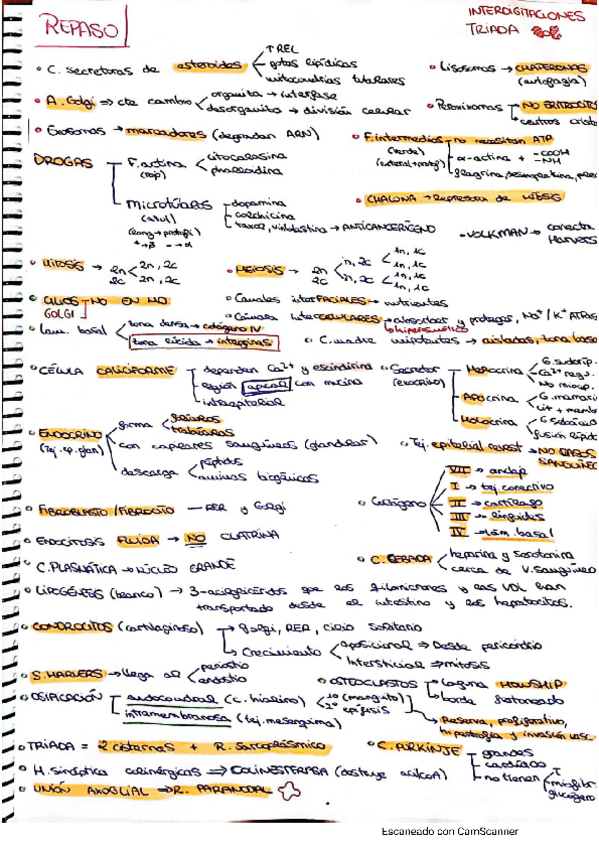 REPASO
INTERDIGITACIONES
TRIADA
• C. secretoras de esteroides
↑ REL
gotas lipídicas
mitocondrias tubulares
• Lisosomas → CHAPERONAS
(autofagia)
• A. Golgi → cte cambio
orgánulo → interfase
desorganito → división celular
• Peroxisomas
NO ERITROCITOS
centros crista
• Exosomas → marcadores (degradan ARN)
• F. intermedios
(verde)
no necesitan ATP
α-actina + -COOH
-NH
DROGAS
F. actina
(rojo)
citocalasina
phalloidina
Microtúbulos
(azul)
+ → β - → α
dopamina
colchicina
taxol, vinblastina → ANTICANCERÍGENO
• CHALONA → represora de
• VOLKMAN → conecta
HAVERS
• MITOSIS →
2n
2c
2n, 2c
2n, 2c
• MEIOSIS →
2n
2c
n, 2c
n, 2c
1n, 1c
1n, 1c
1n, 1c
1n, 1c
• CILIOS → NO EN MO
GOLGI
• Canales interFACIALES → nutrientes
• Canales interCELULARES → absorber y proteger, Na⁺/K⁺ ATPasa
• hiperosmótico
• Lam. basal
zona densa → colágeno IV
zona lúcida → integrinas
• C. madre unipotentes → aisladas, zona basal
• CÉLULA CALICIFORME
dependen Ca²⁺ y
región apical con mucina
intraepitelial
• Secretor
(exocrino)
Merocrina
G. sudoríp.
Ca²⁺ regu.
No mioep.
Apocrina
G. mamaria
cit + memb
Holocrina
G. sebácea
• ENDOCRINO
(Tej. ep. glan)
forma
trabéculas
con capilares sanguíneos (glandular)
descarga
péptidos
aminas biogénicas
• Tej. epitelial revest → NO VASOS
SANGUÍNEOS
• Colágeno
VII → anclaje
I → tej. conectivo
II → cartílago
III →
IV → lám. basal
• FIBROBLASTO / FIBROCITO — RER y Golgi
• ENDOCITOSIS FLUIDA → NO CLATRINA
• C. CEBADA
heparina y serotonina
cerca de V. sanguíneo
• C. PLASMÁTICA → NÚCLEO GRANDE
• LIPOGÉNESIS (blanco) → 3-acilglicéridos que los quilomicrones y las VDL han
transportado desde el intestino y los hepatocitos.
• CONDROCITOS (cartilaginoso)
Golgi, RER, cilio solitario
Crecimiento
Aposicional → Desde pericondrio
Intersticial → mitosis
• S. HAVERS → llega al
periostio
endostio
• OSTEOCLASTOS
laguna HOWSHIP
borde festoneado
• OSIFICACIÓN
endocondral (C. hialino)
1º (manguito)
2º epífisis
intramembranosa (tej. mesénquima)
Reserva, proliferativo,
hipertrofia y invasión vasc.
• TRIADA = 2 cisternas + R. sarcoplásmico
• C. PURKINJE
grandes
cardíaco
no tienen
T
miofibr.
glucógeno
• H. sináptica colinérgicas → COLINESTERASA (destruye acilcoA)
• UNIÓN AXOGLIAL → R. PARANODAL
Escaneado con CamScanner